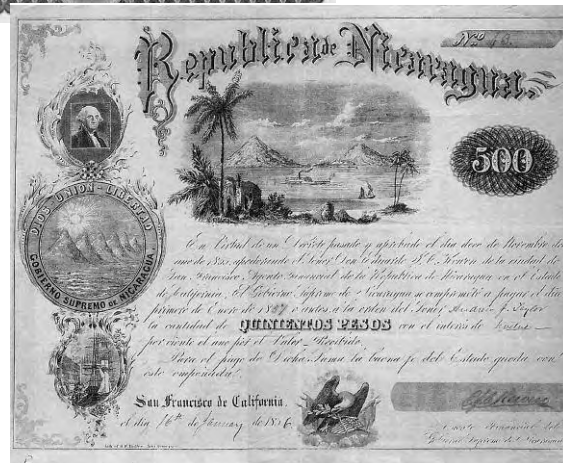 Republica de Nicaragua.
No
500
DIOS-UNION-LIBERTAD
GOBIERNO SUPREMO DE NICARAGUA
En Virtud de un Decreto pasado y aprobado el dia doce de Noviembre del
ano de 1855, apoderando el Senor Don de la ciudad de
San Francisco, Agente de la Republica de Nicaragua en el Estado
de California, El Gobierno Supremo de Nicaragua se a pagar el dia
primero de Enero de 1857 o antes a la orden del Senor
la cantidad de QUINIENTOS PESOS con el interes de
por ciento el ano por el Valor Recibido.
Para el pago de Dicha Suma la buena fe del Estado queda con
esto empeñada.
San Francisco de California.
el dia 16th de January de 1856